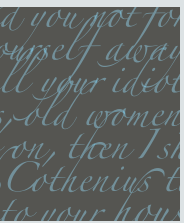 d you not for
ourself alway
ll your idiot
s, old women
on, then I sh
Cothenius t
to your hous